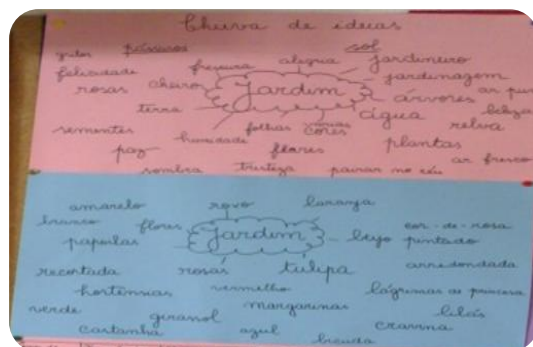 Chuva de ideias
gritos pássaros sol
felicidade frescura alegria jardineiro
jardinagem
rosas cheiro Jardim árvores ar puro
terra água beleza
sementes folhas várias cores relva
humidade
paz flores plantas
ar fresco
sombra tristeza pairar no céu
amarelo roxo laranja
branco flores cor-de-rosa
papoilas Jardim beijo pintado
recortada rosas tulipa arredondada
hortênsias vermelho lágrimas de princesa
verde girassol margaridas lilás
castanha azul cravina